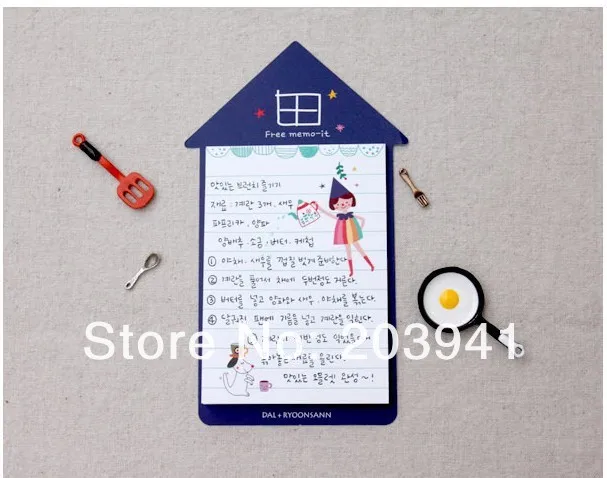 Free memo-it
맛있는 브런치 즐기기
재료 : 계란 3개, 새우
파프리카, 양파
양배추, 소금, 버터, 케첩
① 야채, 새우를 껍질 벗겨 준비한다.
② 계란을 풀어서 채에 두번정도 거른다.
③ 버터를 넣고 양파와 새우, 야채를 볶는다.
④ 달궈진 팬에 기름을 넣고 계란을 익힌다.
Store No: 203941
재료를 올린다.
맛있는 오믈렛 완성~!
DAL+RYOONSANN